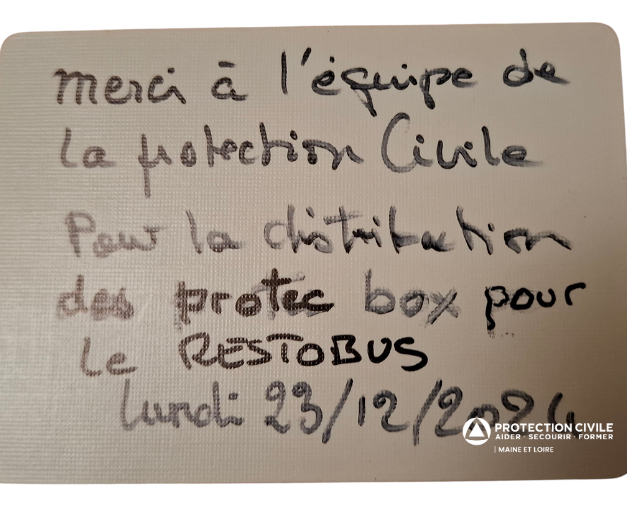 merci à l'équipe de
la protection Civile
Pour la distribution
des protec box pour
le RESTOBUS
lundi 23/12/2024
PROTECTION CIVILE
AIDER · SECOURIR · FORMER
| MAINE ET LOIRE